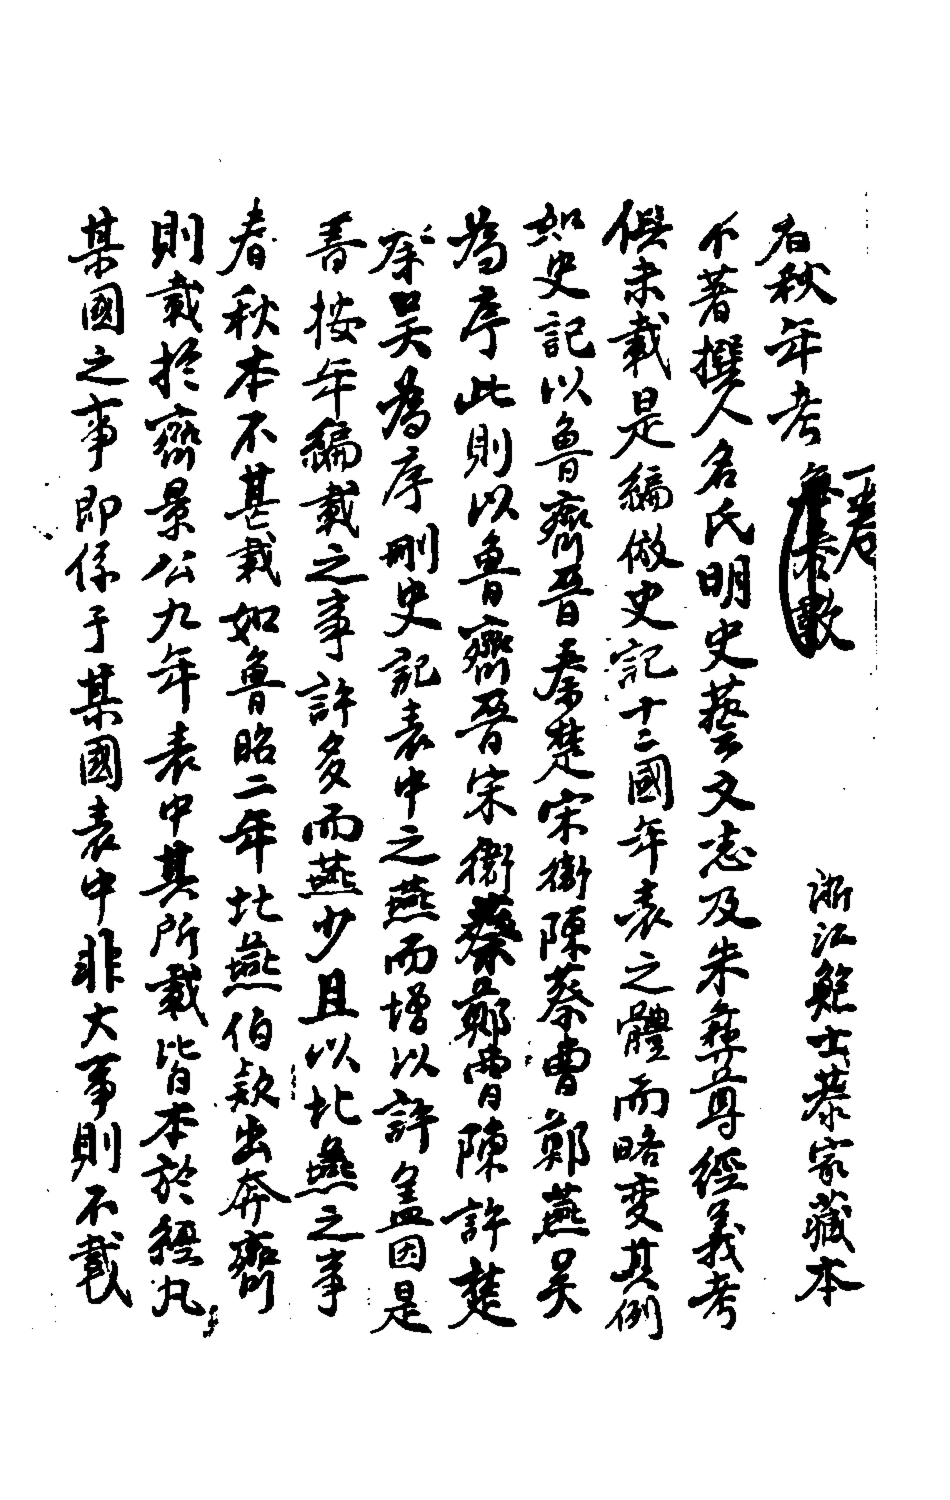 春秋年考 一卷 無卷數 浙江鮑士恭家藏本
不著撰人名氏明史藝文志及朱彝尊經義考
俱未載是編倣史記十二國年表之體而略変其例
如史記以魯齊晉秦楚宋衛陳蔡曹鄭燕吳
為序此則以魯齊晉宋衛蔡鄭曹陳許楚
秦吳為序刪史記表中之燕而增以許盖因是
書按年編載之事許多而燕少且以北燕之事
春秋本不甚載如魯昭二年北燕伯欵出奔齊
則載於齊景公九年表中其所載皆本於經凡
某國之事即係于某國表中非大事則不載